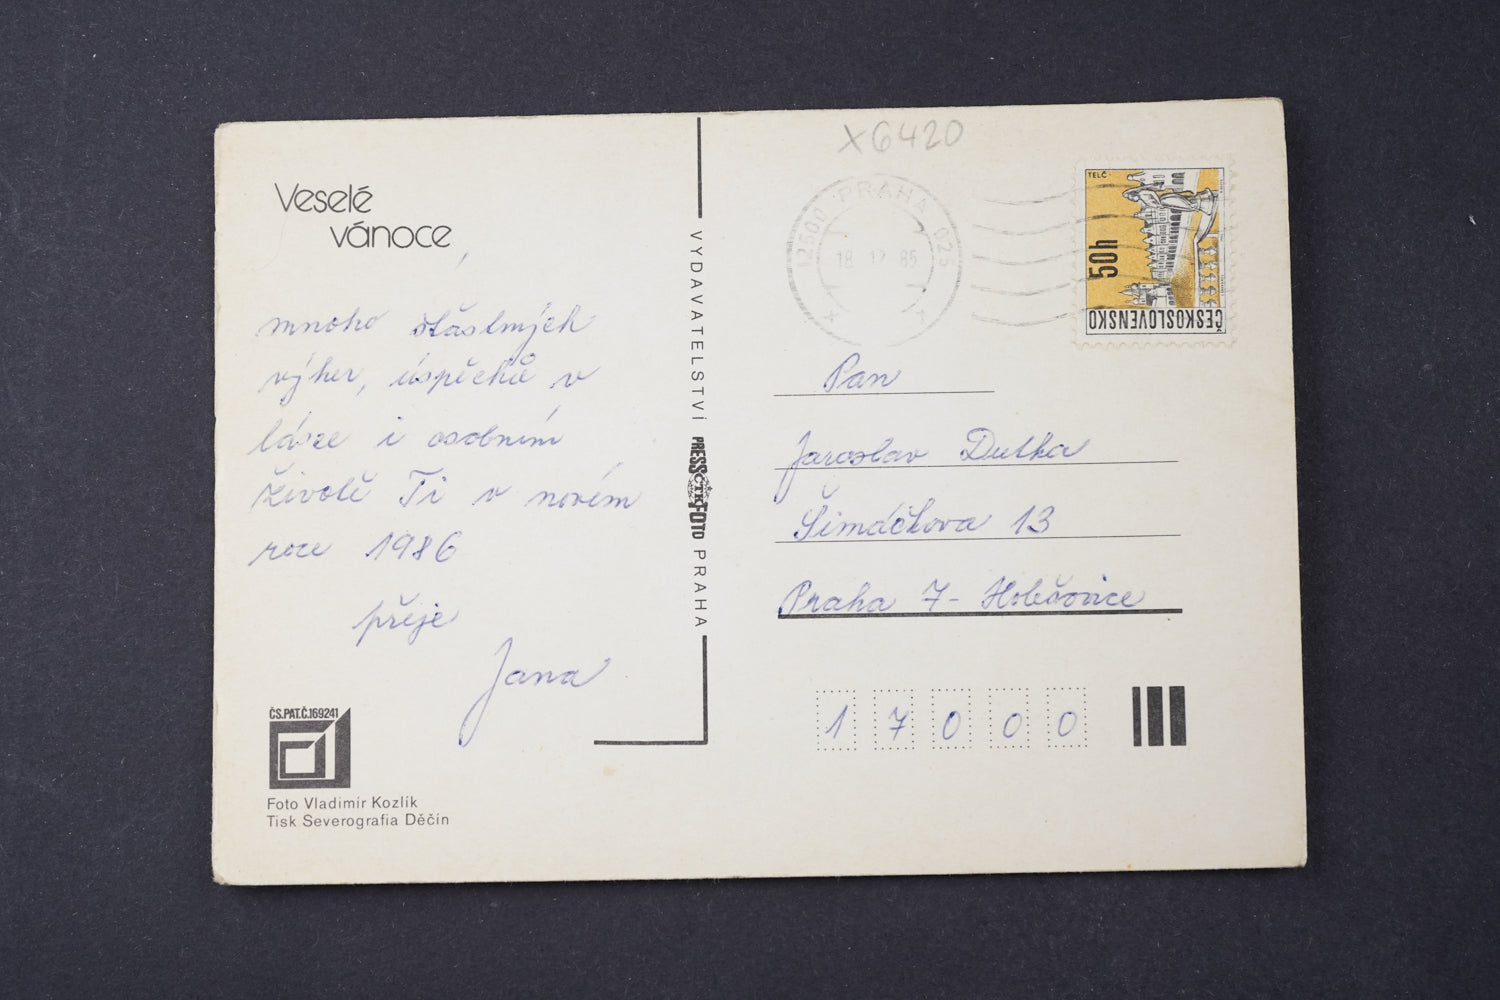 Veselé
vánoce
mnoho šťastných
výher, úspěchů v
lásce i osobním
životě Ti v novém
roce 1986
přeje
Jana
ČS.PAT.Č.169241
Foto Vladimír Kozlík
Tisk Severografia Děčín
VYDAVATELSTVÍ PRESSFOTO PRAHA
ČTK
X6420
12500 PRAHA 025
18.12.85
TELČ
50h
ČESKOSLOVENSKO
Pan
Jaroslav Dutka
Šimáčkova 13
Praha 7- Holešovice
17000